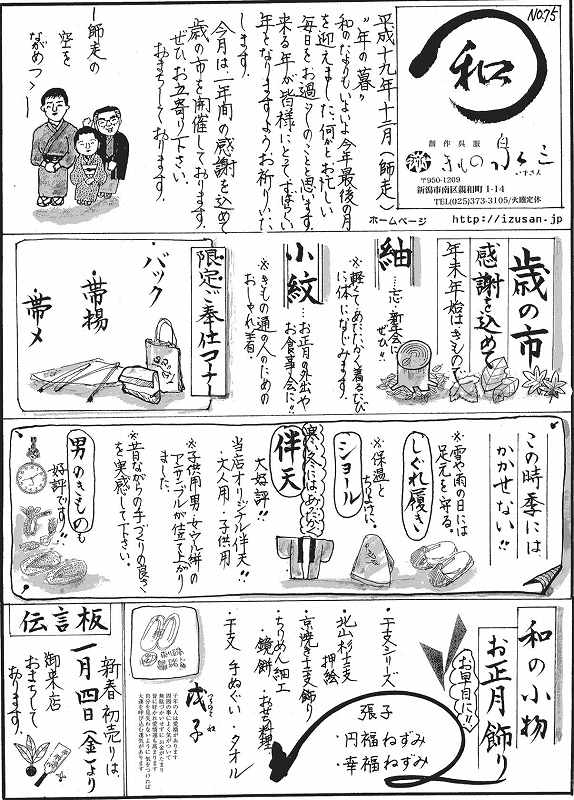 No.75
和
創作呉服
きもの 泉三
いずさん
〒950-1209
新潟市南区親和町 1-14
TEL(025)373-3105/火曜定休
ホームページ http://izusan.jp
平成十九年十二月(師走)
"年の暮"
和のたよりもいよいよ今年最後の月
を迎えました。何かとお忙しい
毎日をお過ごしのことと思います。
来る年が皆様にとってすばらしい
年となりますようお祈りいた
します。
今月は、一年間の感謝を込めて
歳の市を開催しております。
ぜひお立寄り下さい。
おまちしております。
―師走の
空を
ながめつゝ―
歳の市
感謝を込めて
年末年始はきもので
紬
…忘・新年会に
ぜひ!!
※軽くてあたたかく着るたび
に体になじみます。
小紋
…お正月の外出や
お食事会に!!
※きもの通の人のための
おしゃれ着。
限定ご奉仕コーナー
・バック
・帯揚
・帯〆
この時季には
かかせない!!
しぐれ履き
※雪や雨の日には
足元を守る。
ショール
※保温と
ちりよけに。
寒い冬にはあたたかい
伴天
大好評!!
当店オリジナル伴天!!
・大人用・子供用
※子供用男・女ウール絣の
アンサンブルが仕立て上がり
ました。
※昔ながらの手づくりの良さ
を実感して下さい。
男のきものも
好評です!!
和の小物
お正月飾り
お早目に!!
・干支シリーズ
張子
・円福ねずみ
・幸福ねずみ
・北山杉干支
押絵
・京焼き干支飾り
・ちりめん細工
・鏡餅 ・おせち料理
・干支 手ぬぐい・タオル
戊子
つちのえ ね
子年の人は愛嬌があります
周囲の事によく気がついて
無駄づかいせず お金がたまり
皆に好かれ発展家が多いです
自分を見失わないように気をつければ
大漁を呼び込む運気があります
伝言板
新春初売りは、
一月四日(金)より
御来店
おまちして
おります。